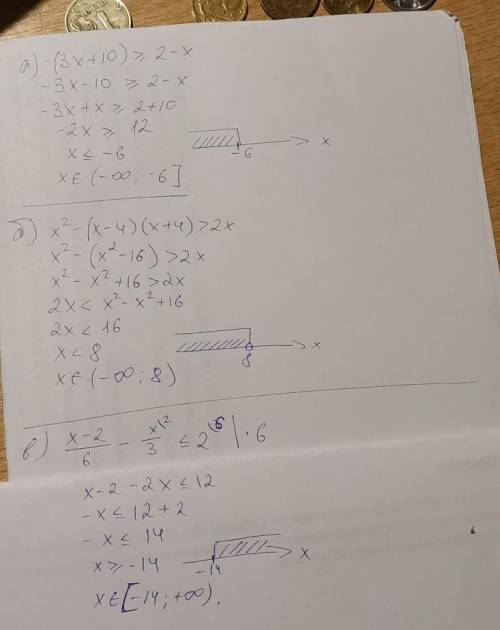 а) -(3x+10) ⩾ 2-x
-3x-10 ⩾ 2-x
-3x+x ⩾ 2+10
-2x ⩾ 12
x ≤ -6
-6 x
x∈ (-∞; -6].
б) x²-(x-4)(x+4)>2x
x²-(x²-16)>2x
x²-x²+16>2x
2x< x²-x²+16
2x< 16
x<8
8 x
x∈ (-∞; 8)
в) (x-2)/6 - x\²/3 ≤ 2\⁶ | · 6
x-2-2x≤12
-x≤12+2
-x≤ 14
x⩾-14
-14 x
x∈[-14; +∞).